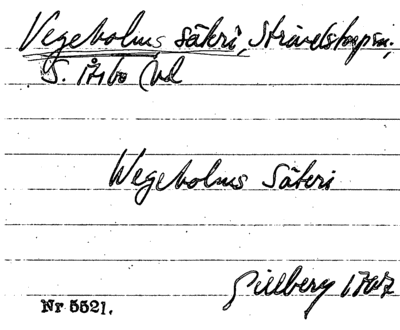 Vegeholms säteri, Strövelstorps sn;
S. Åsbo hd
Wegeholms Säteri
Gillberg 1767
Nr 5521.